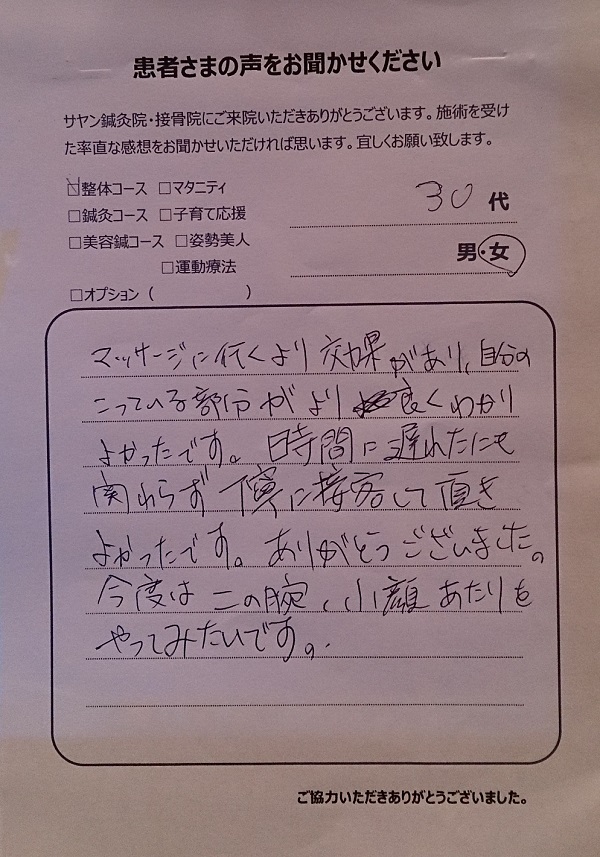 患者さまの声をお聞かせください
サヤン鍼灸院・接骨院にご来院いただきありがとうございます。施術を受け
た率直な感想をお聞かせいただければ思います。宜しくお願い致します。
☑整体コース □マタニティ
30 代
□鍼灸コース □子育て応援
□美容鍼コース □姿勢美人
男・女
□運動療法
□オプション ( )
マッサージに行くより効果があり、自分の
こっている部分がより良くわかり
よかったです。時間に遅れたにも
関わらず丁寧に接客して頂き
よかったです。ありがとうございました。
今度は二の腕、小顔あたりを
やってみたいです。
ご協力いただきありがとうございました。